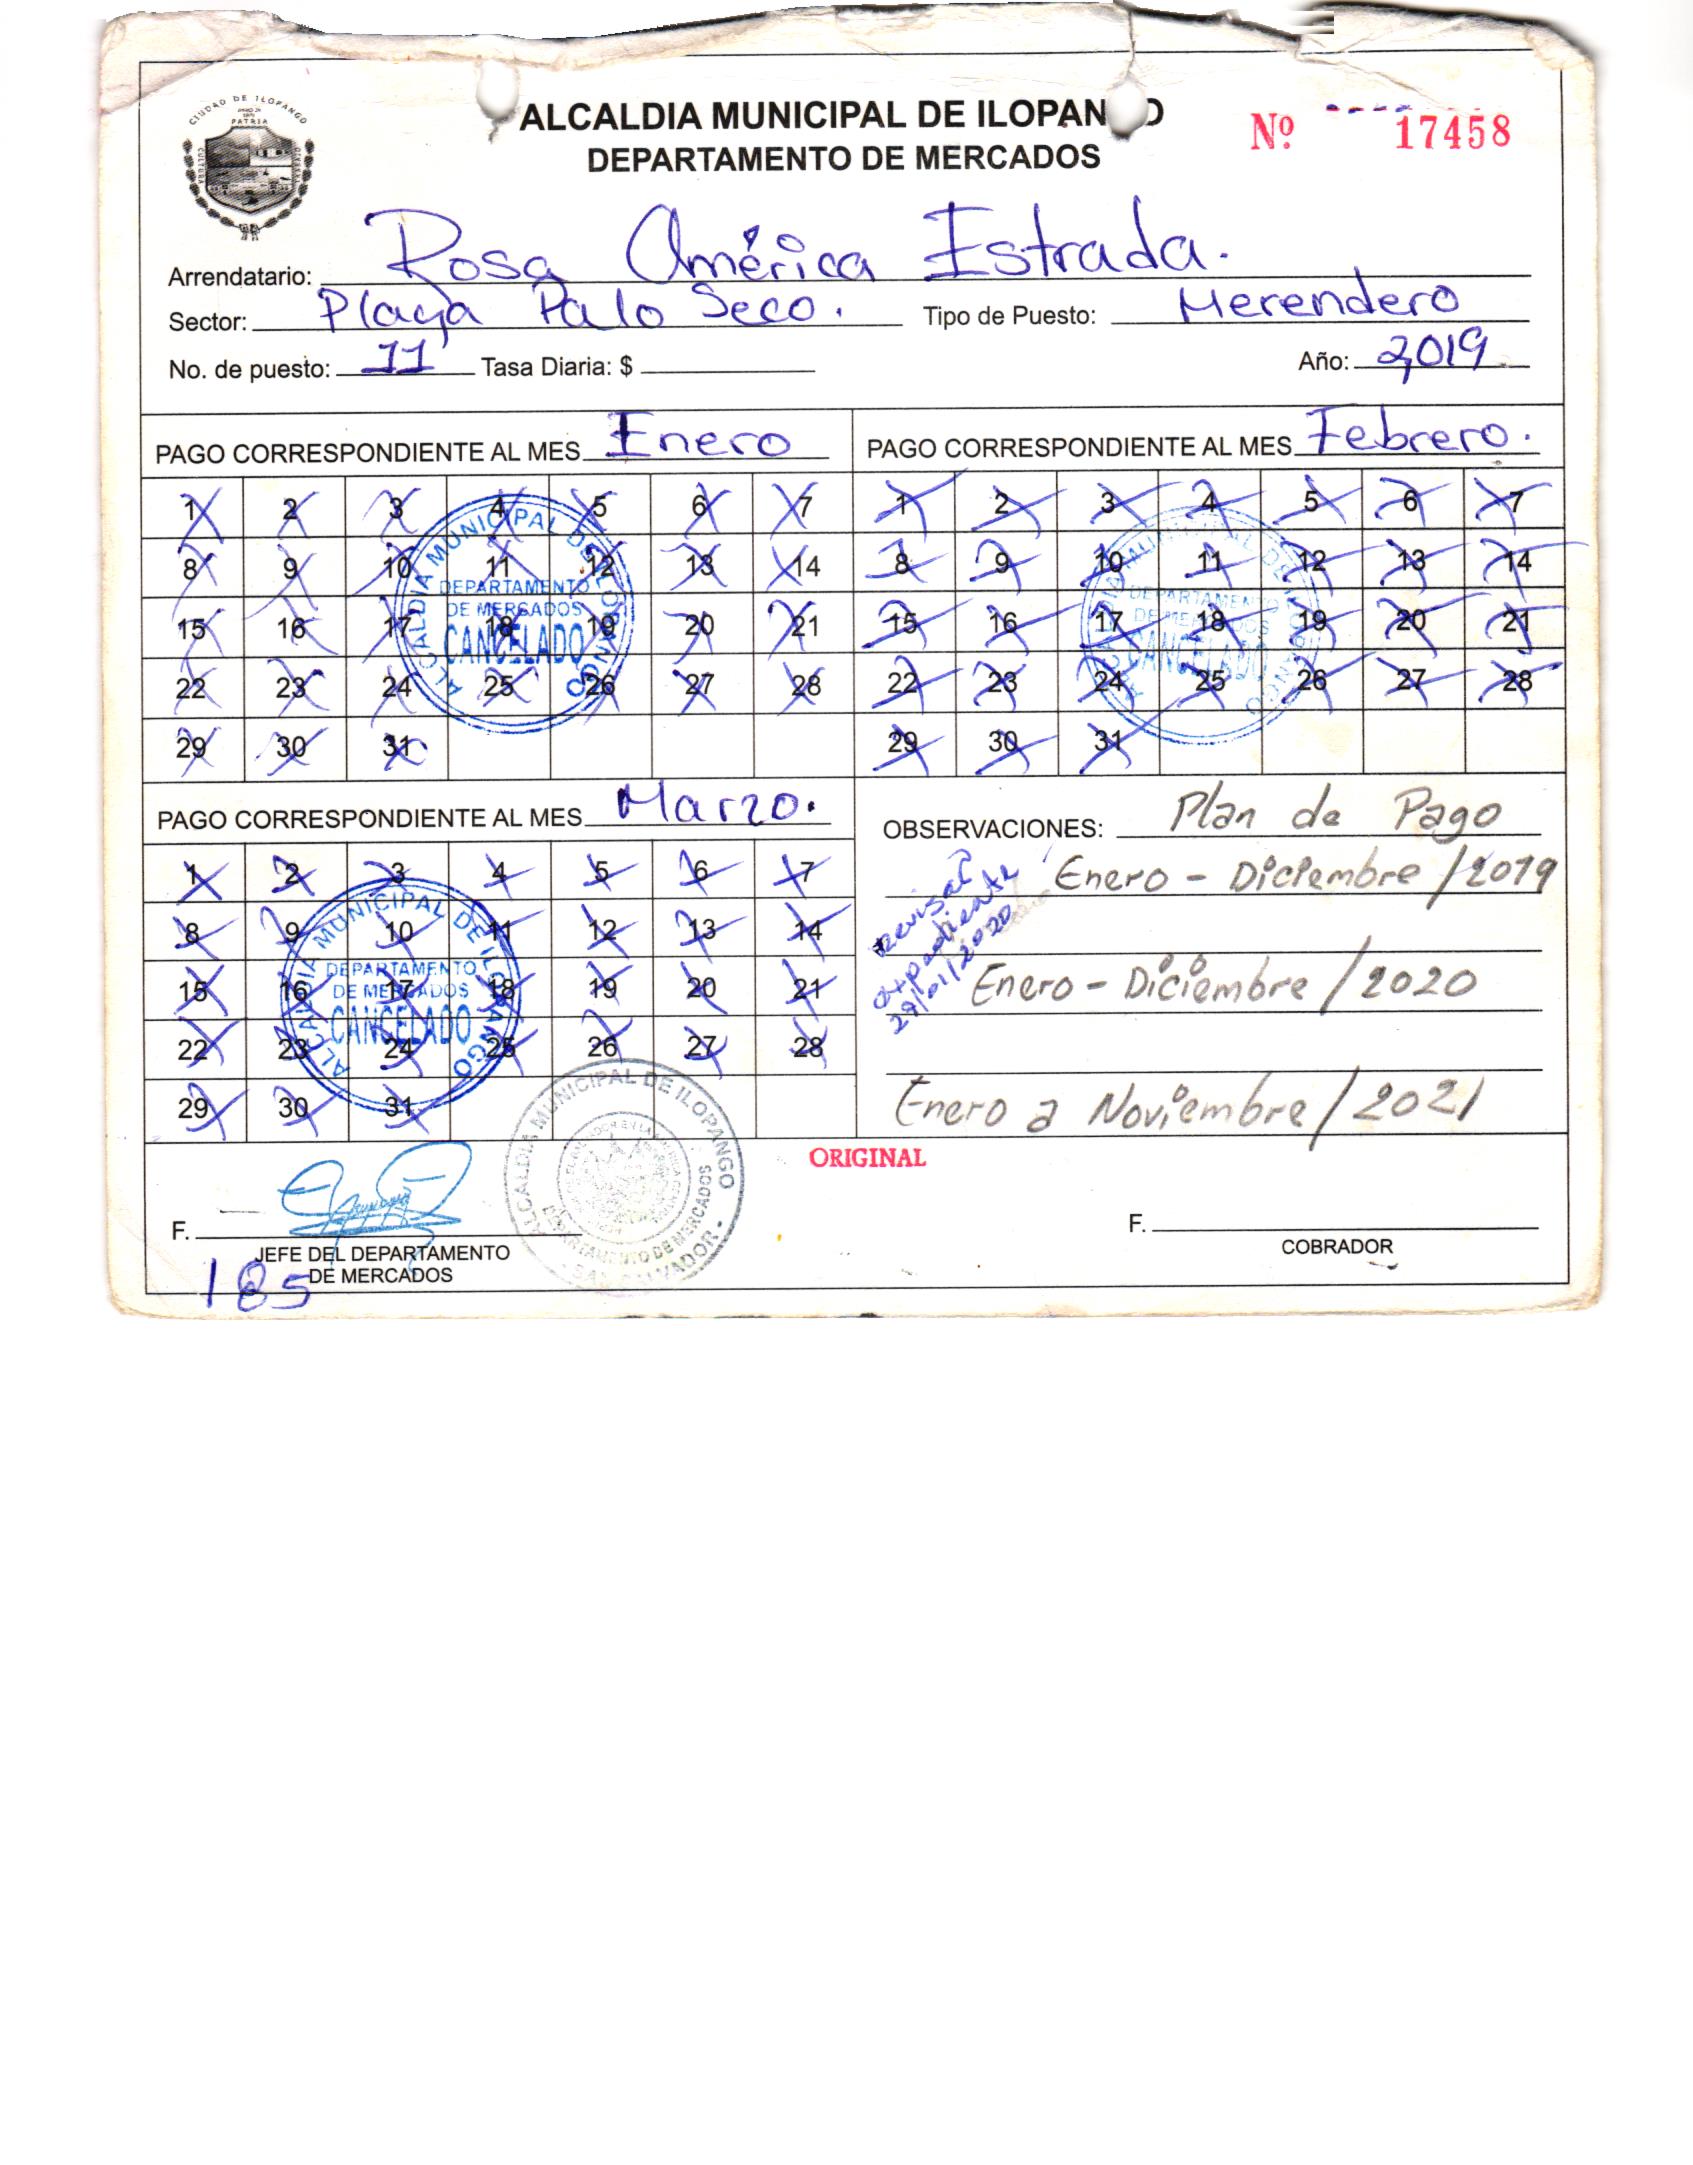 CIUDAD DE ILOPANGO
PATRIA
CULTURA
ALCALDIA MUNICIPAL DE ILOPAN O
DEPARTAMENTO DE MERCADOS
Nº 17458
Arrendatario: Rosa América Estrada.
Sector: Playa Palo Seco. Tipo de Puesto: Merendero
No. de puesto: 11 Tasa Diaria: $ Año: 2,019
PAGO CORRESPONDIENTE AL MES Enero
1 2 3 4 5 6 7
8 9 10 11 12 13 14
15 16 17 18 19 20 21
22 23 24 25 26 27 28
29 30 31
ALCALDIA MUNICIPAL DE ILOPANGO
DEPARTAMENTO
DE MERCADOS
CANCELADO
PAGO CORRESPONDIENTE AL MES Febrero.
1 2 3 4 5 6 7
8 9 10 11 12 13 14
15 16 17 18 19 20 21
22 23 24 25 26 27 28
29 30 31
ALCALDIA MUNICIPAL DE ILOPANGO
DEPARTAMENTO
DE MERCADOS
CANCELADO
PAGO CORRESPONDIENTE AL MES Marzo.
1 2 3 4 5 6 7
8 9 10 11 12 13 14
15 16 17 18 19 20 21
22 23 24 25 26 27 28
29 30 31
ALCALDIA MUNICIPAL DE ILOPANGO
DEPARTAMENTO
DE MERCADOS
CANCELADO
OBSERVACIONES: Plan de Pago
Enero - Diciembre / 2019
Enero - Diciembre / 2020
Enero a Noviembre / 2021
Revisar
expediente
29/01/2020
ORIGINAL
ALCALDIA MUNICIPAL DE ILOPANGO
DEPARTAMENTO DE MERCADOS
SAN SALVADOR
F.
JEFE DEL DEPARTAMENTO
DE MERCADOS
185
F.
COBRADOR